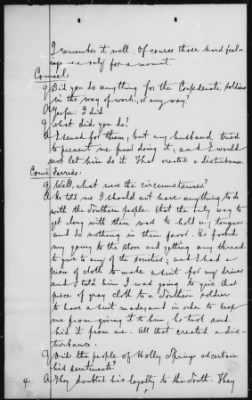 I remember it well. Of course those hard feel-
ings only for a moment.
Counsel,
Q Did you do anything for the Confederate soldiers
in the way of work, or any way?
A Yes sir I did.
Q What did you do?
A I sewed for them; but my husband tried
to prevent me from doing it; and I would
not let him do it. That created a disturbance.
Com'r Ferriss:
Q Well, what were the circumstances?
A He told me I should not have anything to do
with the Southern people that the only way to
get along with them was to hold my tongue
and do nothing in their favor. He forbid
my going to the store and getting any thread
to give to any of the societies; and I had a
piece of cloth to make a suit for my driver
and I told him I was going to give that
piece of gray cloth to a Southern soldier
to have a suit made, and in order to keep
me from giving it to him, he took and
hid it from me. All that created a dis-
turbance.
Q Did the people of Holly Springs ascertain
his sentiments?
A They doubted his loyalty to the South. They
4